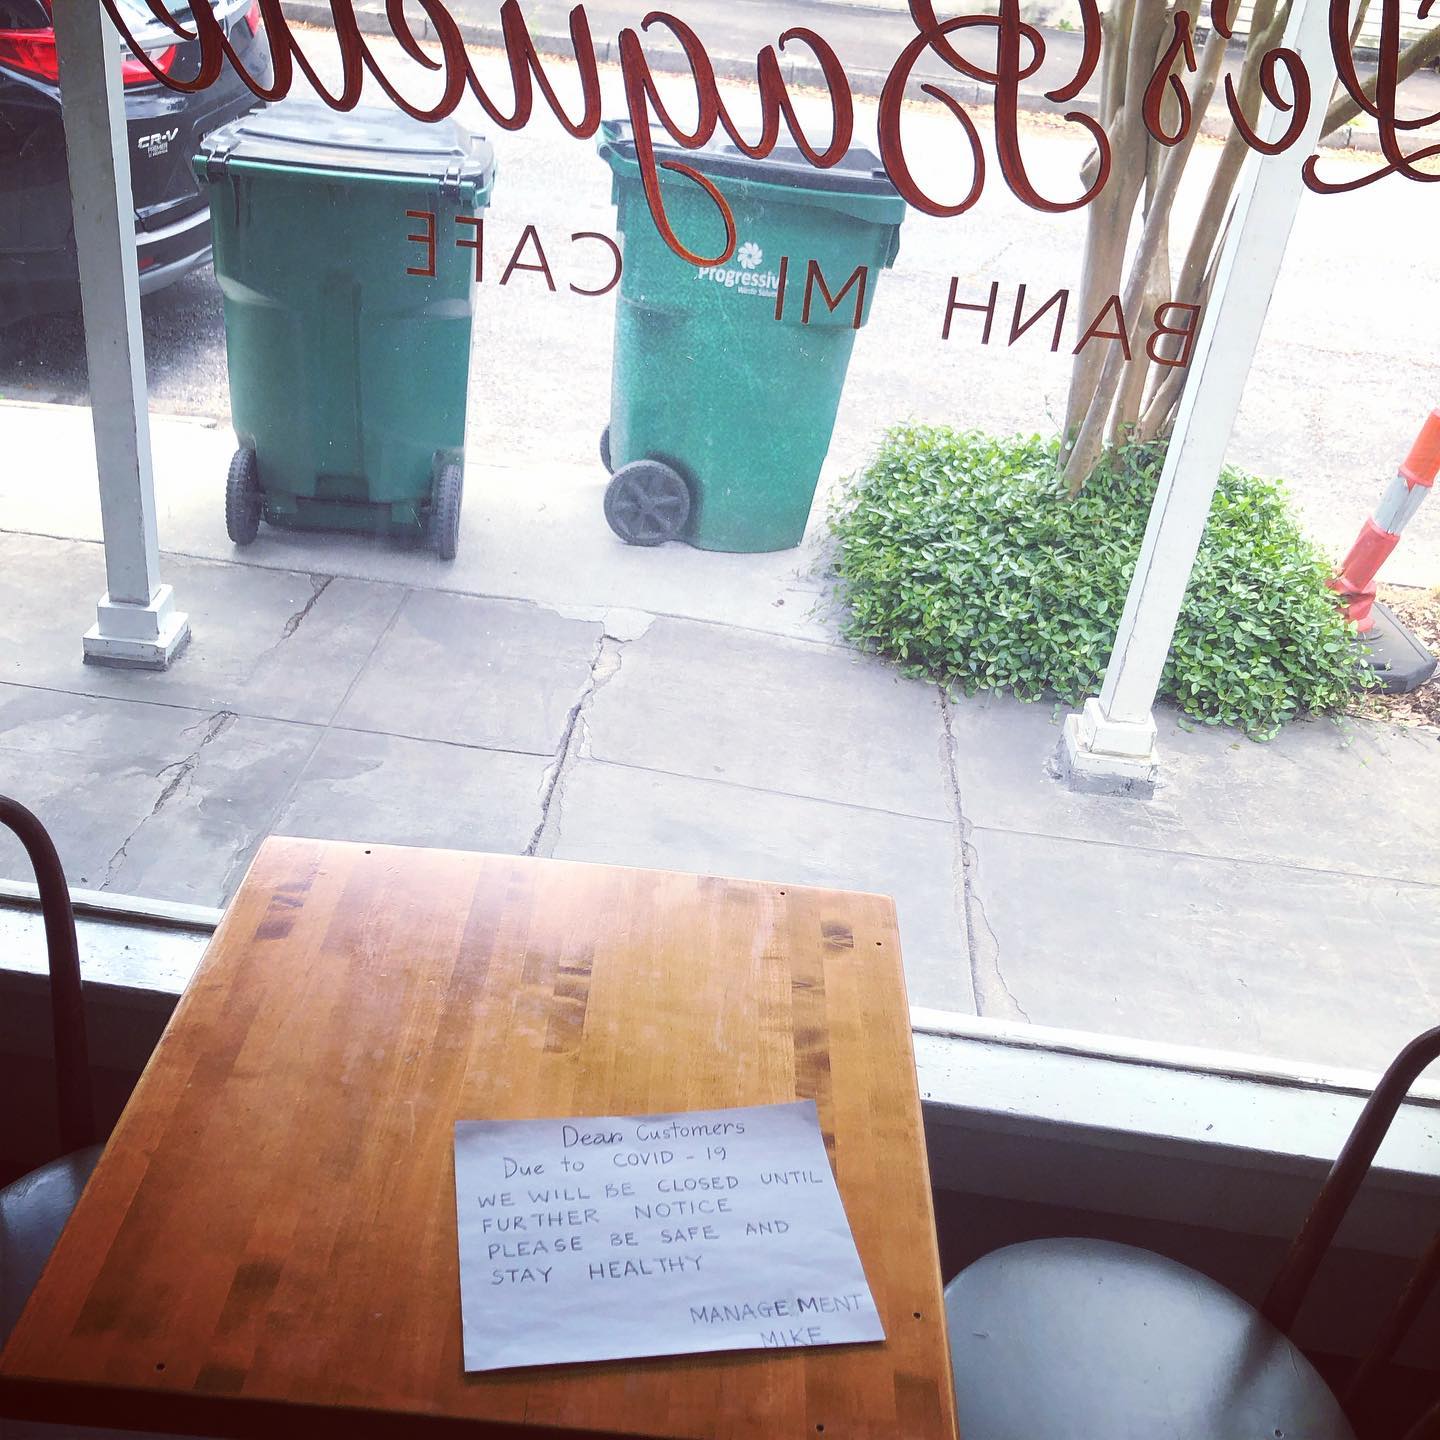 Le's Baguette
BANH MI CAFE
CR-V
Progressiv
Dear Customers
Due to COVID - 19
WE WILL BE CLOSED UNTIL
FURTHER NOTICE
PLEASE BE SAFE AND
STAY HEALTHY
MANAGEMENT
MIKE